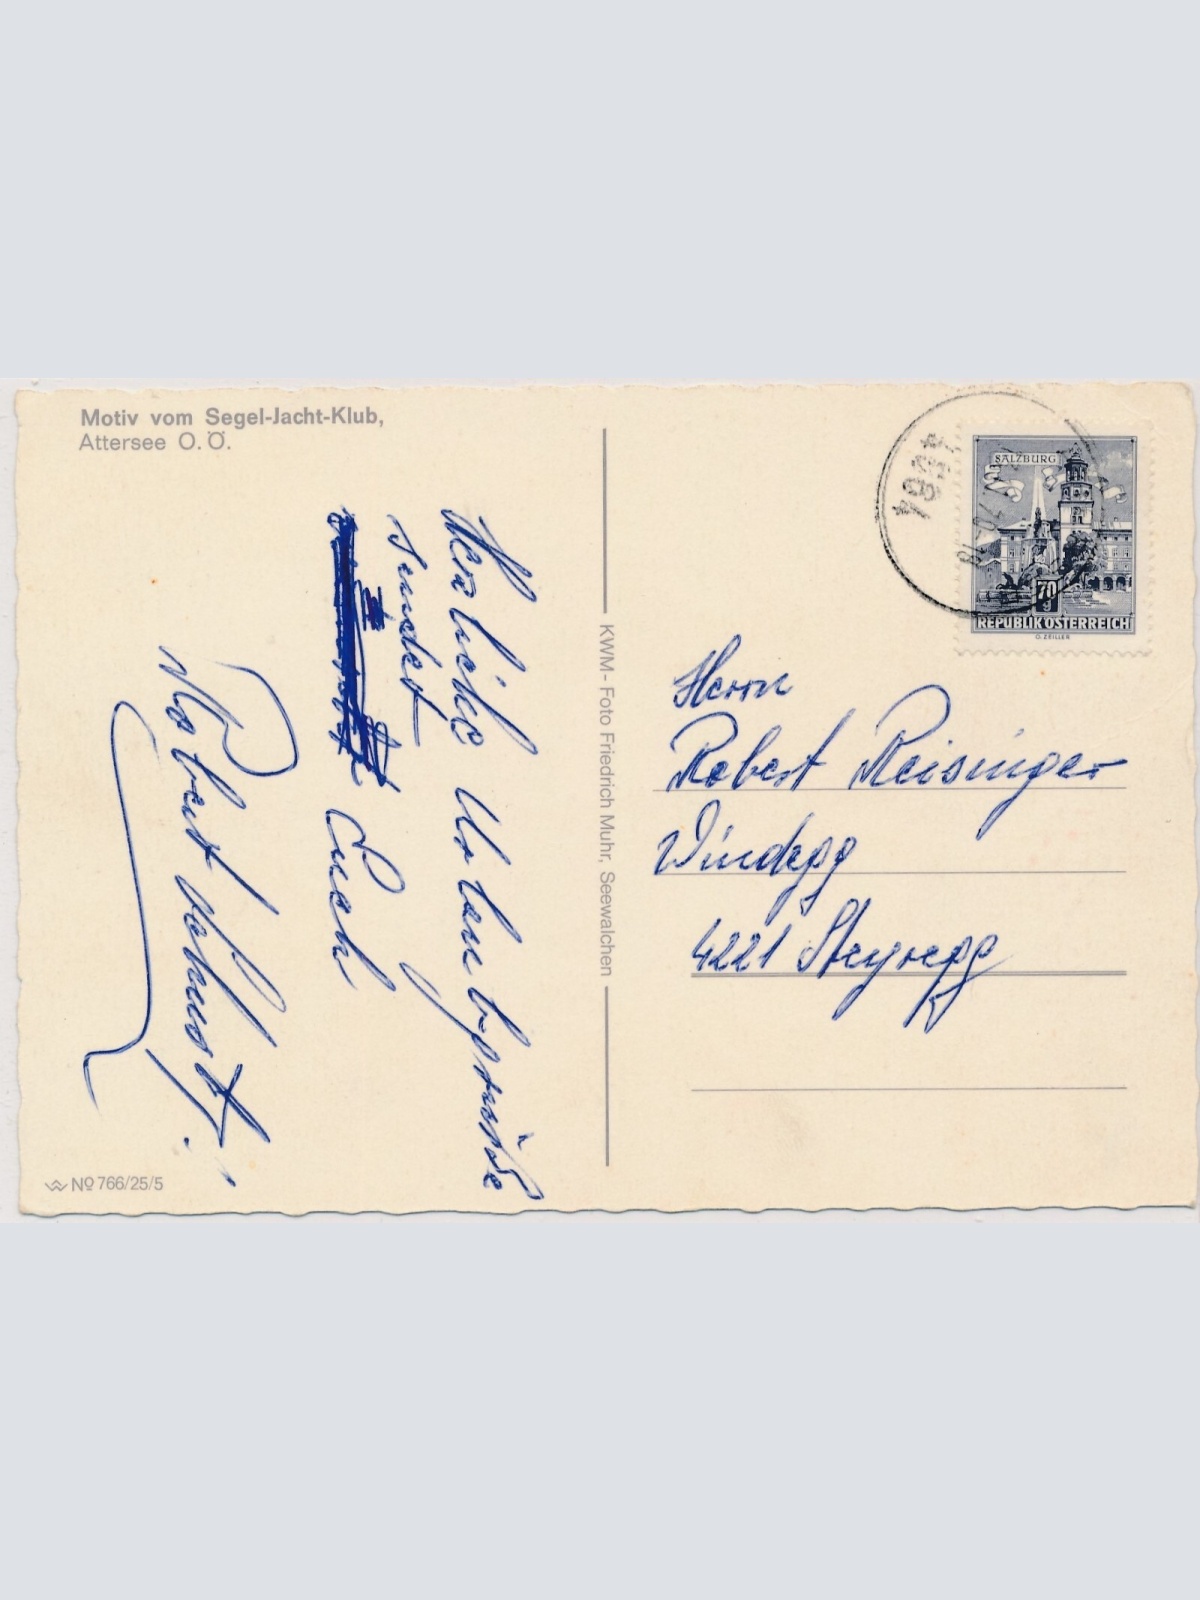 Motiv vom Segel-Jacht-Klub,
Attersee O.Ö.
Herzliche Urlaubsgrüße
sendet
Euch
Robert
KWM - Foto Friedrich Muhr, Seewalchen
No 766/25/5
4864
SALZBURG
70
g
REPUBLIK ÖSTERREICH
O. ZEILLER
Herrn
Robert Reisinger
Windegg
4221 Steyregg